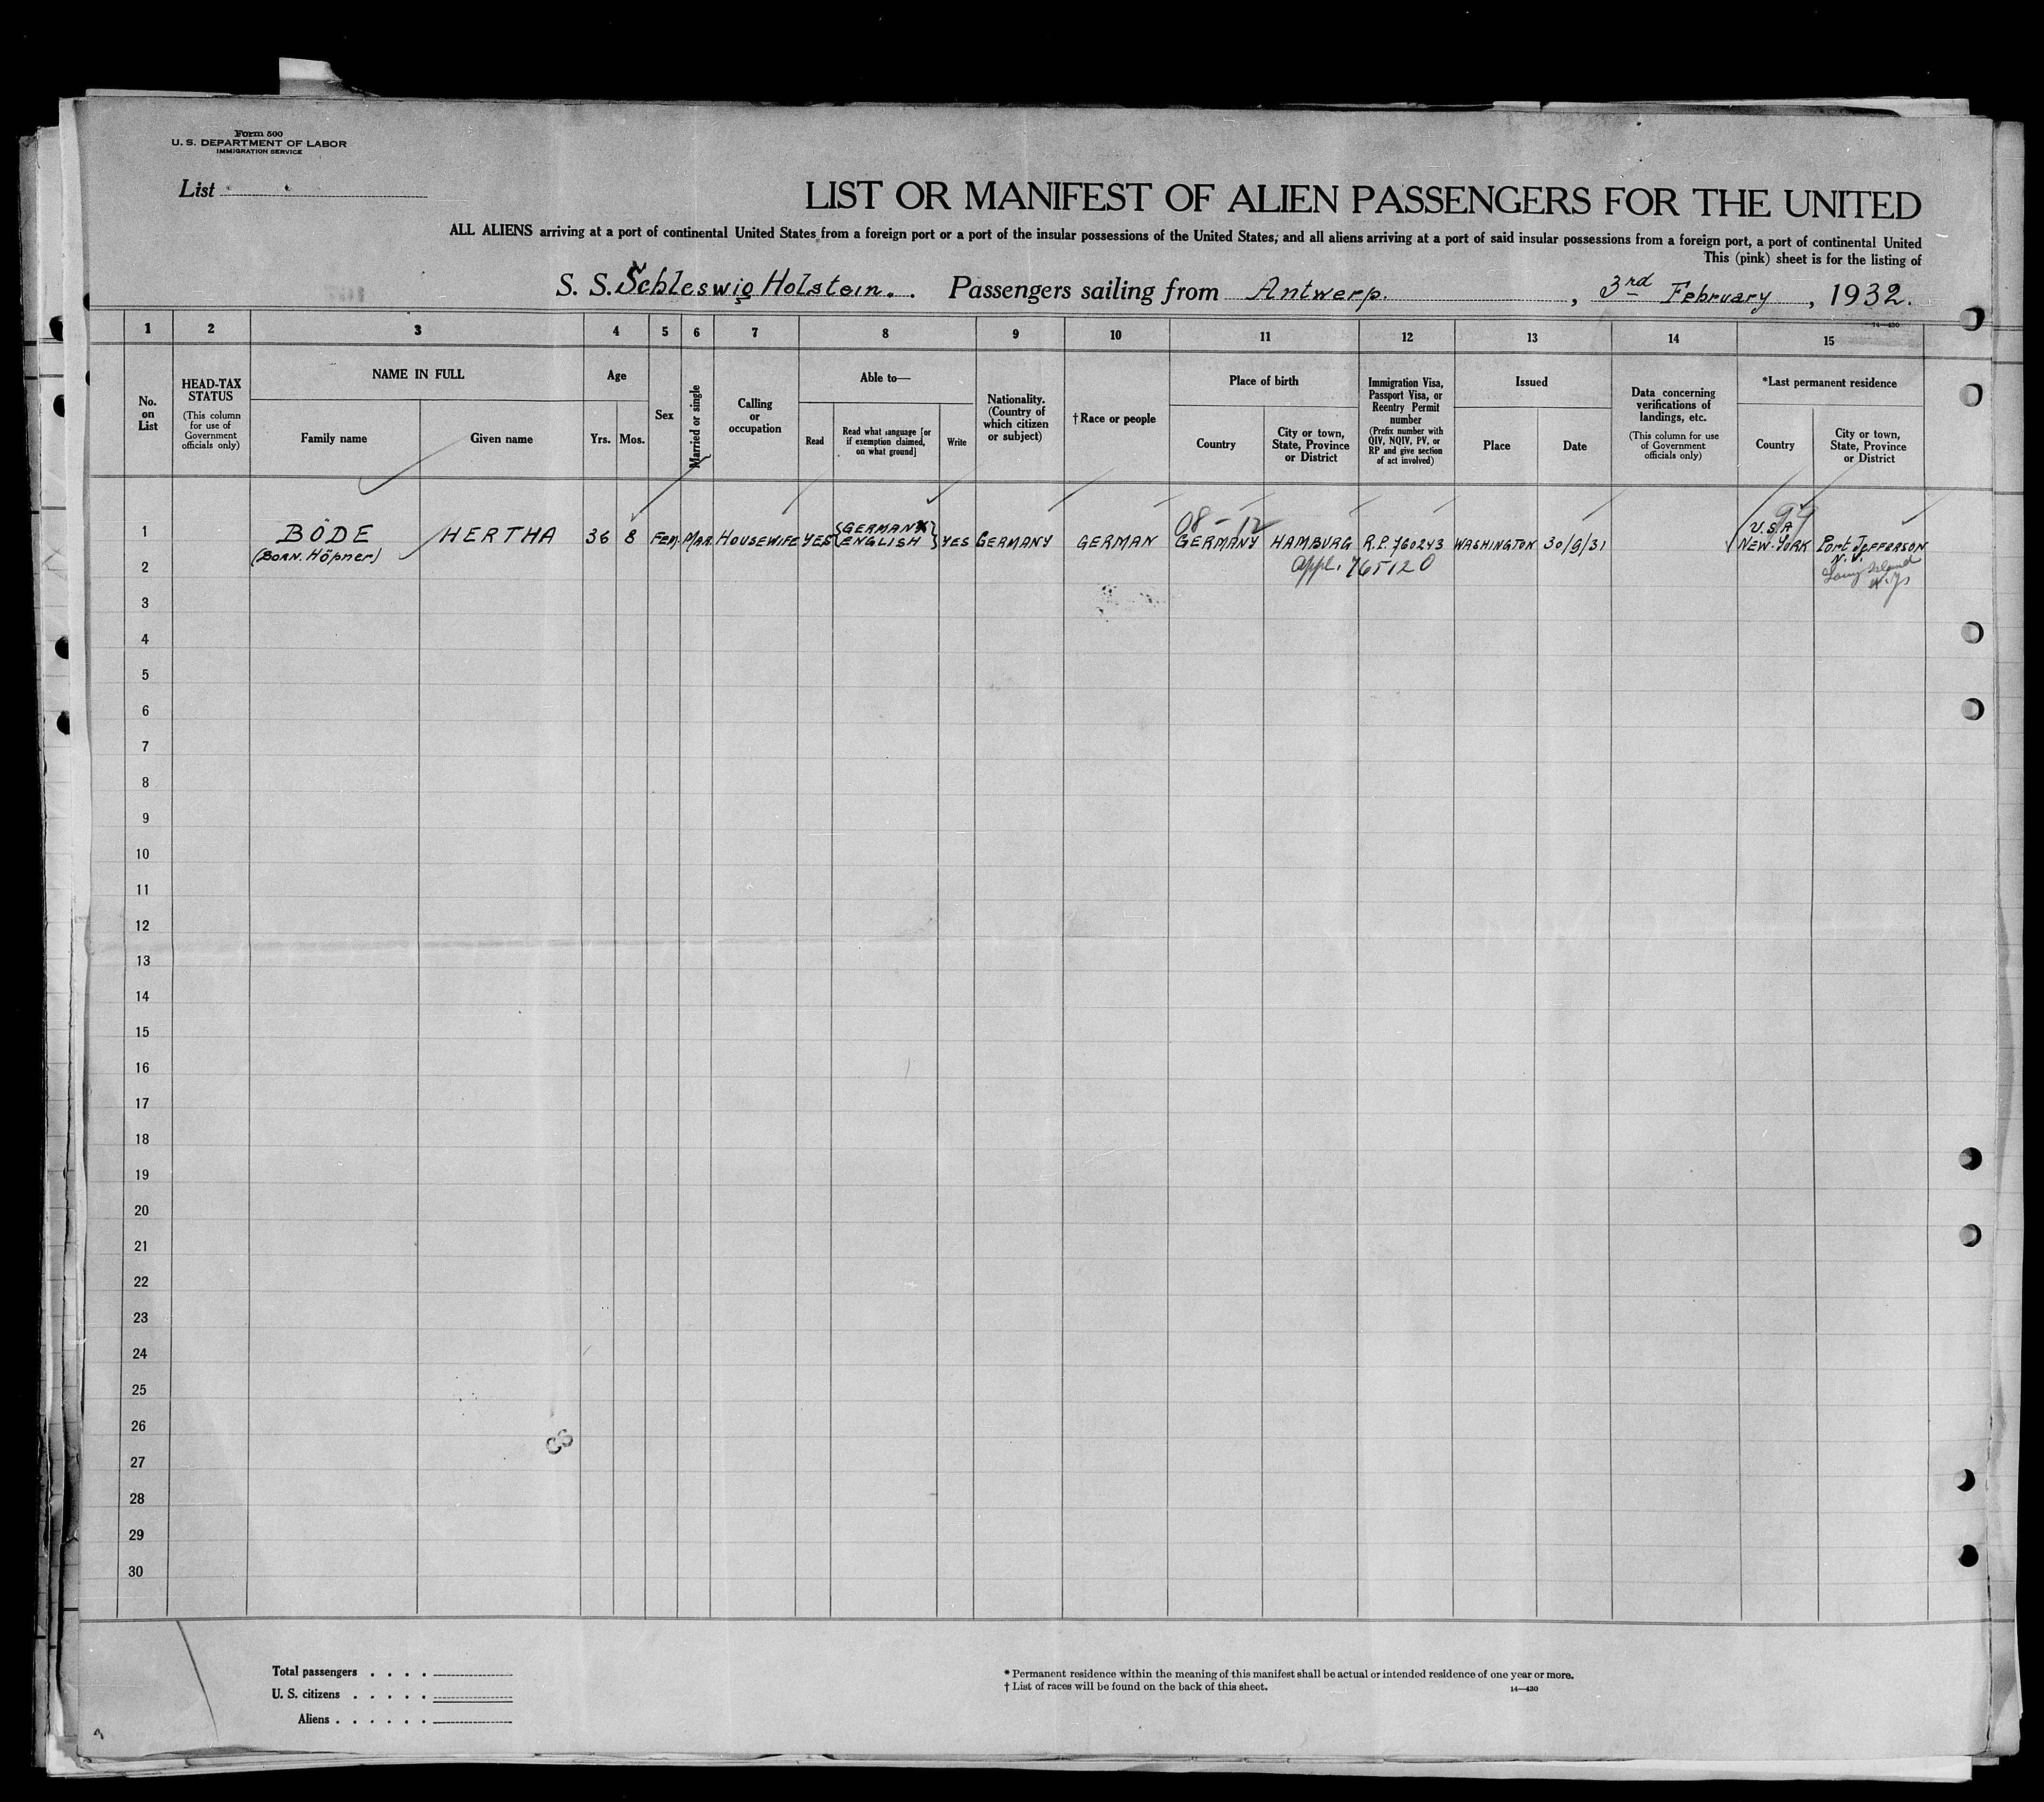 Form 500
U. S. DEPARTMENT OF LABOR
IMMIGRATION SERVICE
List
LIST OR MANIFEST OF ALIEN PASSENGERS FOR THE UNITED
ALL ALIENS arriving at a port of continental United States from a foreign port or a port of the insular possessions of the United States, and all aliens arriving at a port of said insular possessions from a foreign port, a port of continental United
This (pink) sheet is for the listing of
S. S. Schleswig Holstein. Passengers sailing from Antwerp. , 3rd February , 1932.
14—430
1 2 3 4 5 6 7 8 9 10 11 12 13 14 15
No. on List
HEAD-TAX STATUS
(This column for use of Government officials only)
NAME IN FULL
Family name
Given name
Age
Yrs.
Mos.
Sex
Married or single
Calling or occupation
Able to—
Read
Read what language [or if exemption claimed, on what ground]
Write
Nationality. (Country of which citizen or subject)
† Race or people
Place of birth
Country
City or town, State, Province or District
Immigration Visa, Passport Visa, or Reentry Permit number
(Prefix number with QIV, NQIV, PV, or RP and give section of act involved)
Issued
Place
Date
Data concerning verifications of landings, etc.
(This column for use of Government officials only)
*Last permanent residence
Country
City or town, State, Province or District
08-12
99
1 BÖDE HERTHA 36 8 Fem. MAR. HOUSEWIFE YES {GERMAN ENGLISH} YES GERMANY GERMAN GERMANY HAMBURG R.P. 760243 WASHINGTON 30/9/31 U.S.A. NEW-YORK Port Jefferson N.Y.
(BORN. Höpner)
appl. 765120
Long Island N.Y.
2
3
4
5
6
7
8
9
10
11
12
13
14
15
16
17
18
19
20
21
22
23
24
25
26
27
28
29
30
Total passengers . . . .
U. S. citizens . . . . .
Aliens . . . . . .
* Permanent residence within the meaning of this manifest shall be actual or intended residence of one year or more.
† List of races will be found on the back of this sheet.
14—430